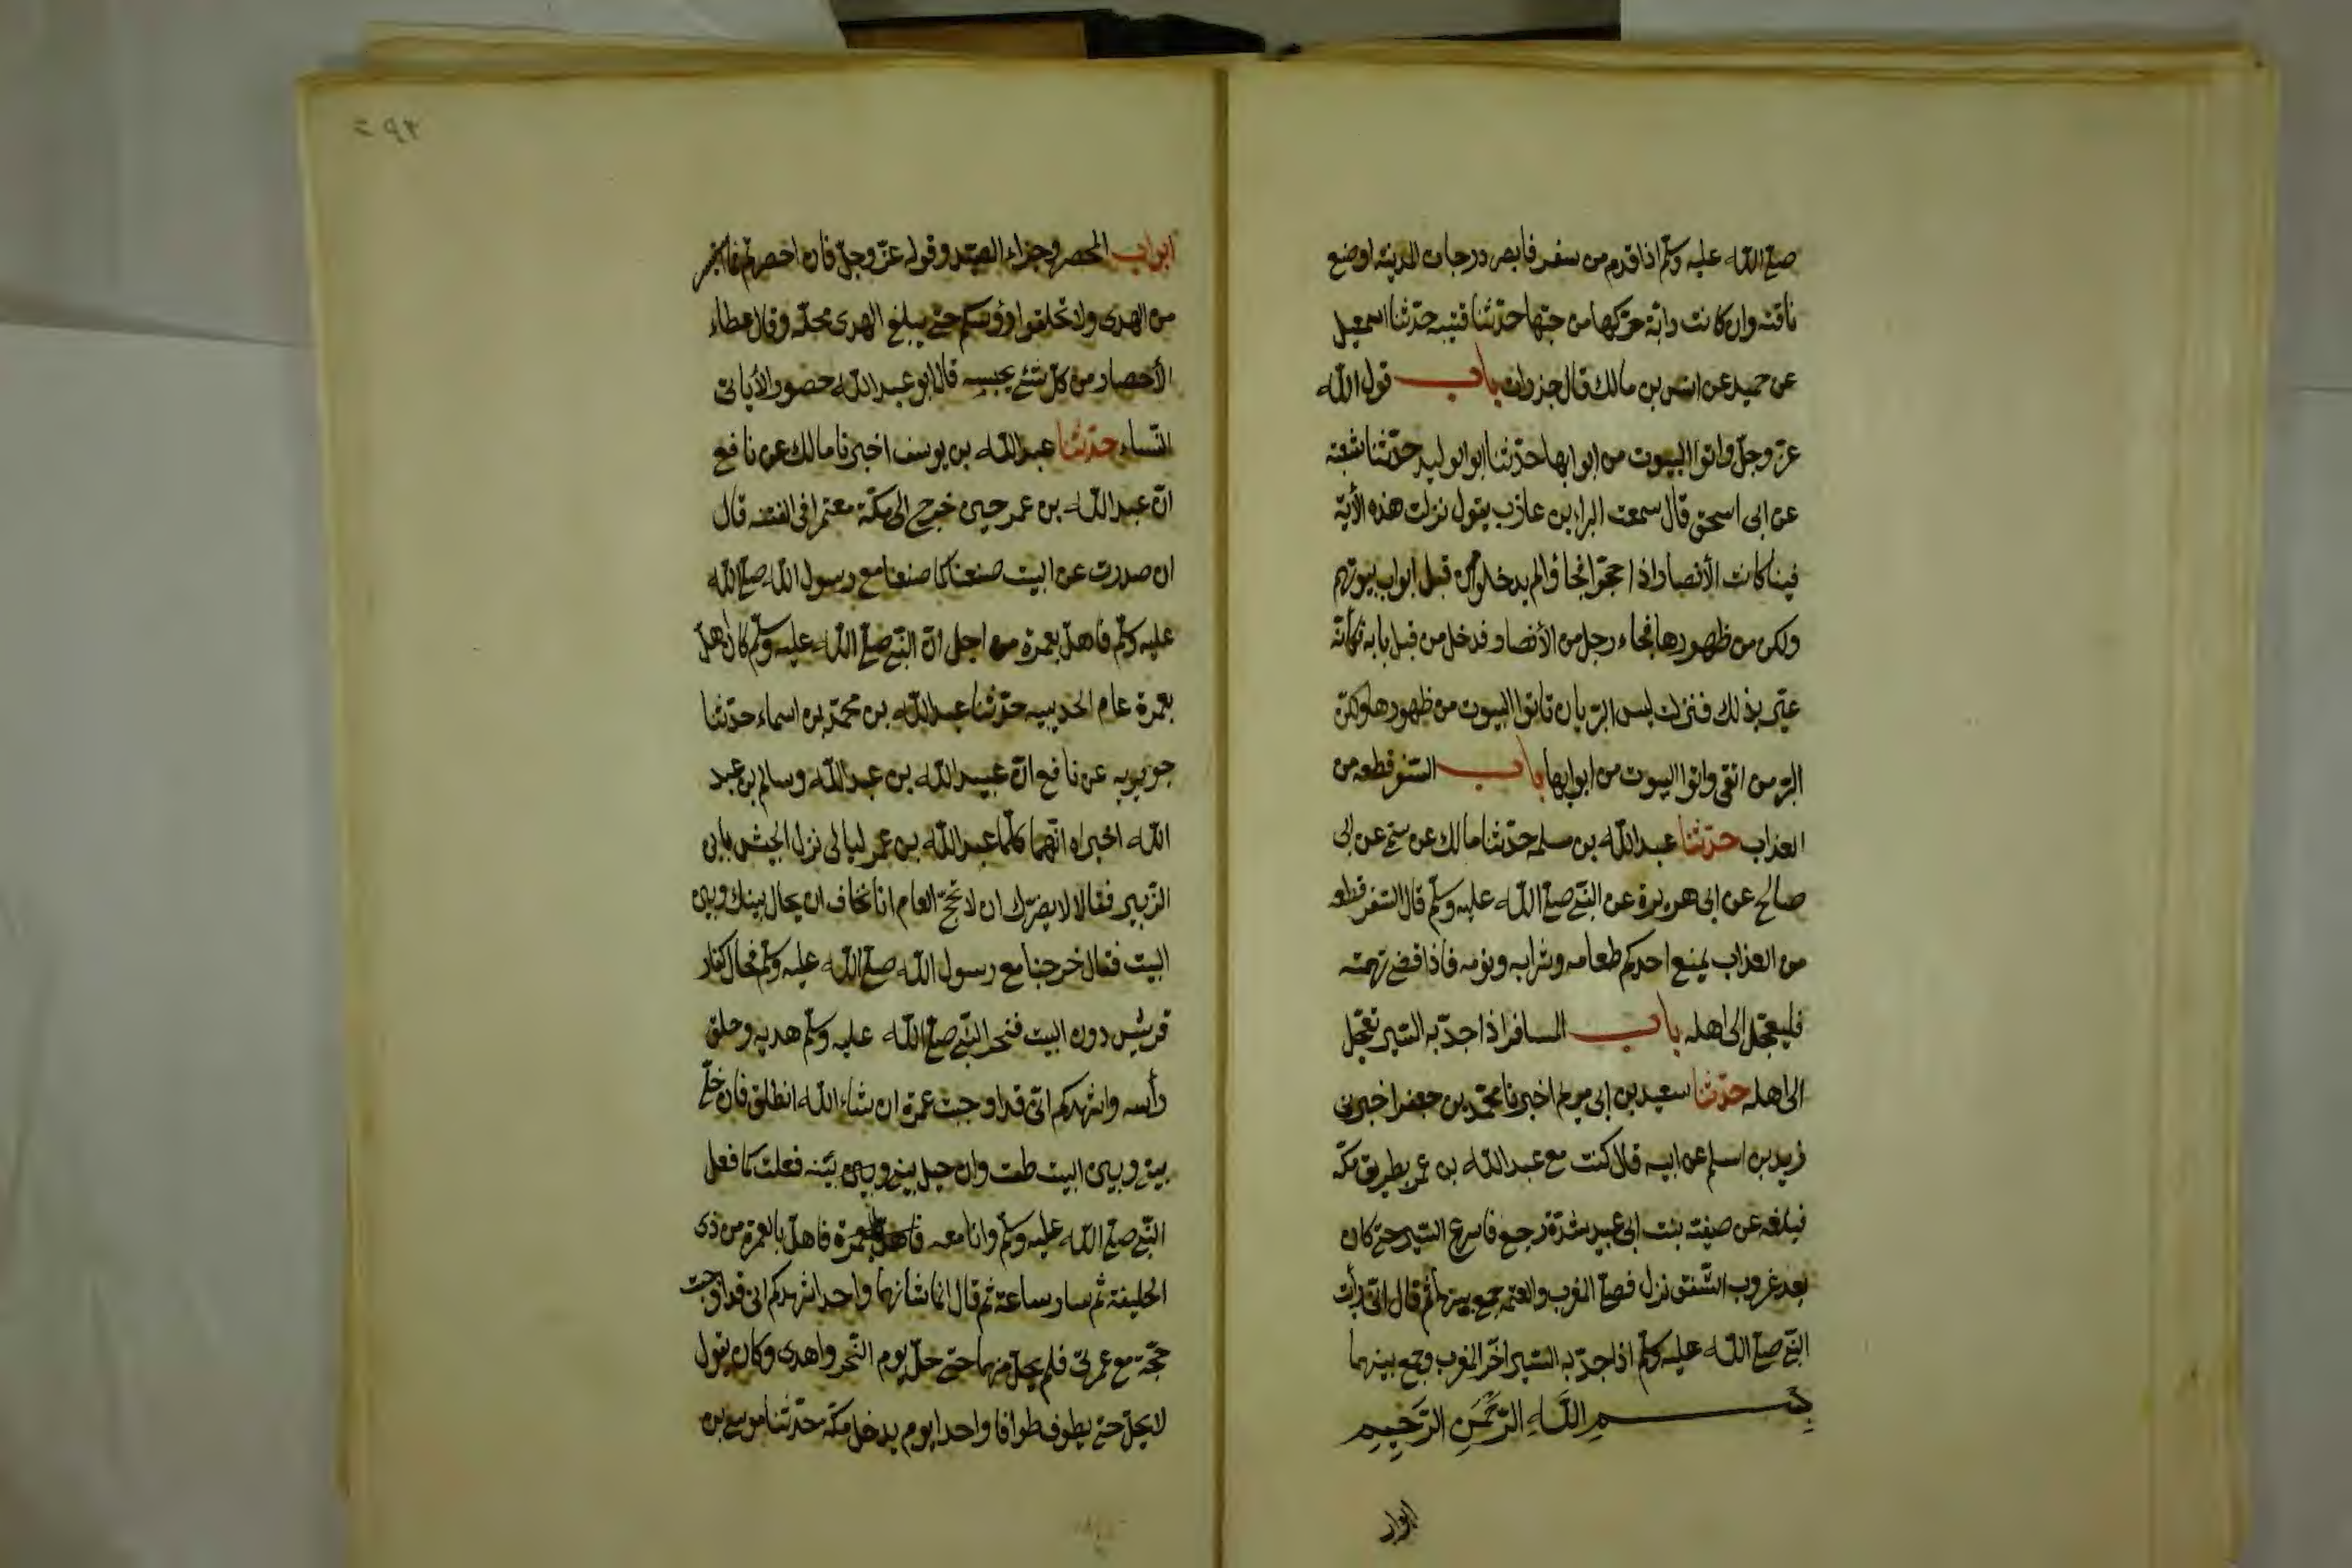 صلى الله عليه وسلم اذا قدم من سفر فابصر درجات المدينه اوضع
ناقته وان كانت دابة حركها من حبها حدثنا قتيبه حدثنا اسمعيل
عن حميد عن انس بن مالك قال جدرات باب قول الله
عز وجل واتوا البيوت من ابوابها حدثنا ابو الوليد حدثنا شعبة
عن ابى اسحق قال سمعت البراء بن عازب يقول نزلت هذه الأية
فينا كانت الأنصار اذا حجوا فجاؤا لم يدخلوا من قبل ابواب بيوتهم
ولكن من ظهورها فجاء رجل من الأنصار فدخل من قبل بابه فكأنه
عير بذلك فنزلت ليس البر بان تاتوا البيوت من ظهورها ولكن
البر من اتقى واتوا البيوت من ابوابها باب السفر قطعه من
العذاب حدثنا عبد الله بن مسلمه حدثنا مالك عن سمى عن ابى
صالح عن ابى هريرة عن النبى صلى الله عليه وسلم قال السفر قطعه
من العذاب يمنع احدكم طعامه وشرابه ونومه فاذا قضى نهمته
فليعجل الى اهله باب المسافر اذا جد به السير تعجل
الى اهله حدثنا سعيد بن ابى مريم اخبرنا محمد بن جعفر اخبرنى
زيد بن اسلم عن ابيه قال كنت مع عبد الله بن عمر بطريق مكه
فبلغه عن صفية بنت ابى عبيد شدة وجع فاسرع السير حتى كان
بعد غروب الشفق نزل فصلى المغرب والعتمه جمع بينهما ثم قال انى رأيت
النبى صلى الله عليه وسلم اذا جد به السير اخر المغرب وجمع بينهما
بسم الله الرحمن الرحيم
ابواب
٢٩٣
ابواب المحصر وجزاء الصيد وقوله عز وجل فان احصرتم فما استيسر
من الهدى ولا تحلقوا رؤسكم حتى يبلغ الهدى محله وقال عطاء
الأحصار من كل شئ يحبسه قال ابو عبد الله حصورا لا ياتى
النساء حدثنا عبد الله بن يوسف اخبرنا مالك عن نافع
ان عبد الله بن عمر حين خرج الى مكة معتمرا فى الفتنه قال
ان صددت عن البيت صنعنا كما صنعنا مع رسول الله صلى الله
عليه وسلم فاهل بعمرة من اجل ان النبى صلى الله عليه وسلم كان اهل
بعمرة عام الحديبيه حدثنا عبد الله بن محمد بن اسماء حدثنا
جويريه عن نافع ان عبيد الله بن عبد الله وسالم بن عبد
الله اخبراه انهما كلما عبد الله بن عمر ليالى نزل الجيش بابن
الزبير فقالا لا يضرك ان لا تحج العام انا نخاف ان يحال بينك وبين
البيت فقال خرجنا مع رسول الله صلى الله عليه وسلم فحال كفار
قريش دون البيت فنحر النبى صلى الله عليه وسلم هديه وحلق
رأسه واشهدكم انى قد اوجبت عمرة ان شاء الله انطلق فان خلى
بينى وبين البيت طفت وان حيل بينى وبين بينه فعلت كما فعل
النبى صلى الله عليه وسلم وانا معه فاهل بعمرة فاهل بالعمرة من ذى
الحليفة ثم سار ساعة ثم قال انما شأنهما واحد اشهدكم انى قد اوجبت
حجة مع عمرتى فلم يحل منهما حتى حل يوم النحر واهدى وكان يقول
لا يحل حتى يطوف طوافا واحدا يوم يدخل مكة حدثنا موسى بن